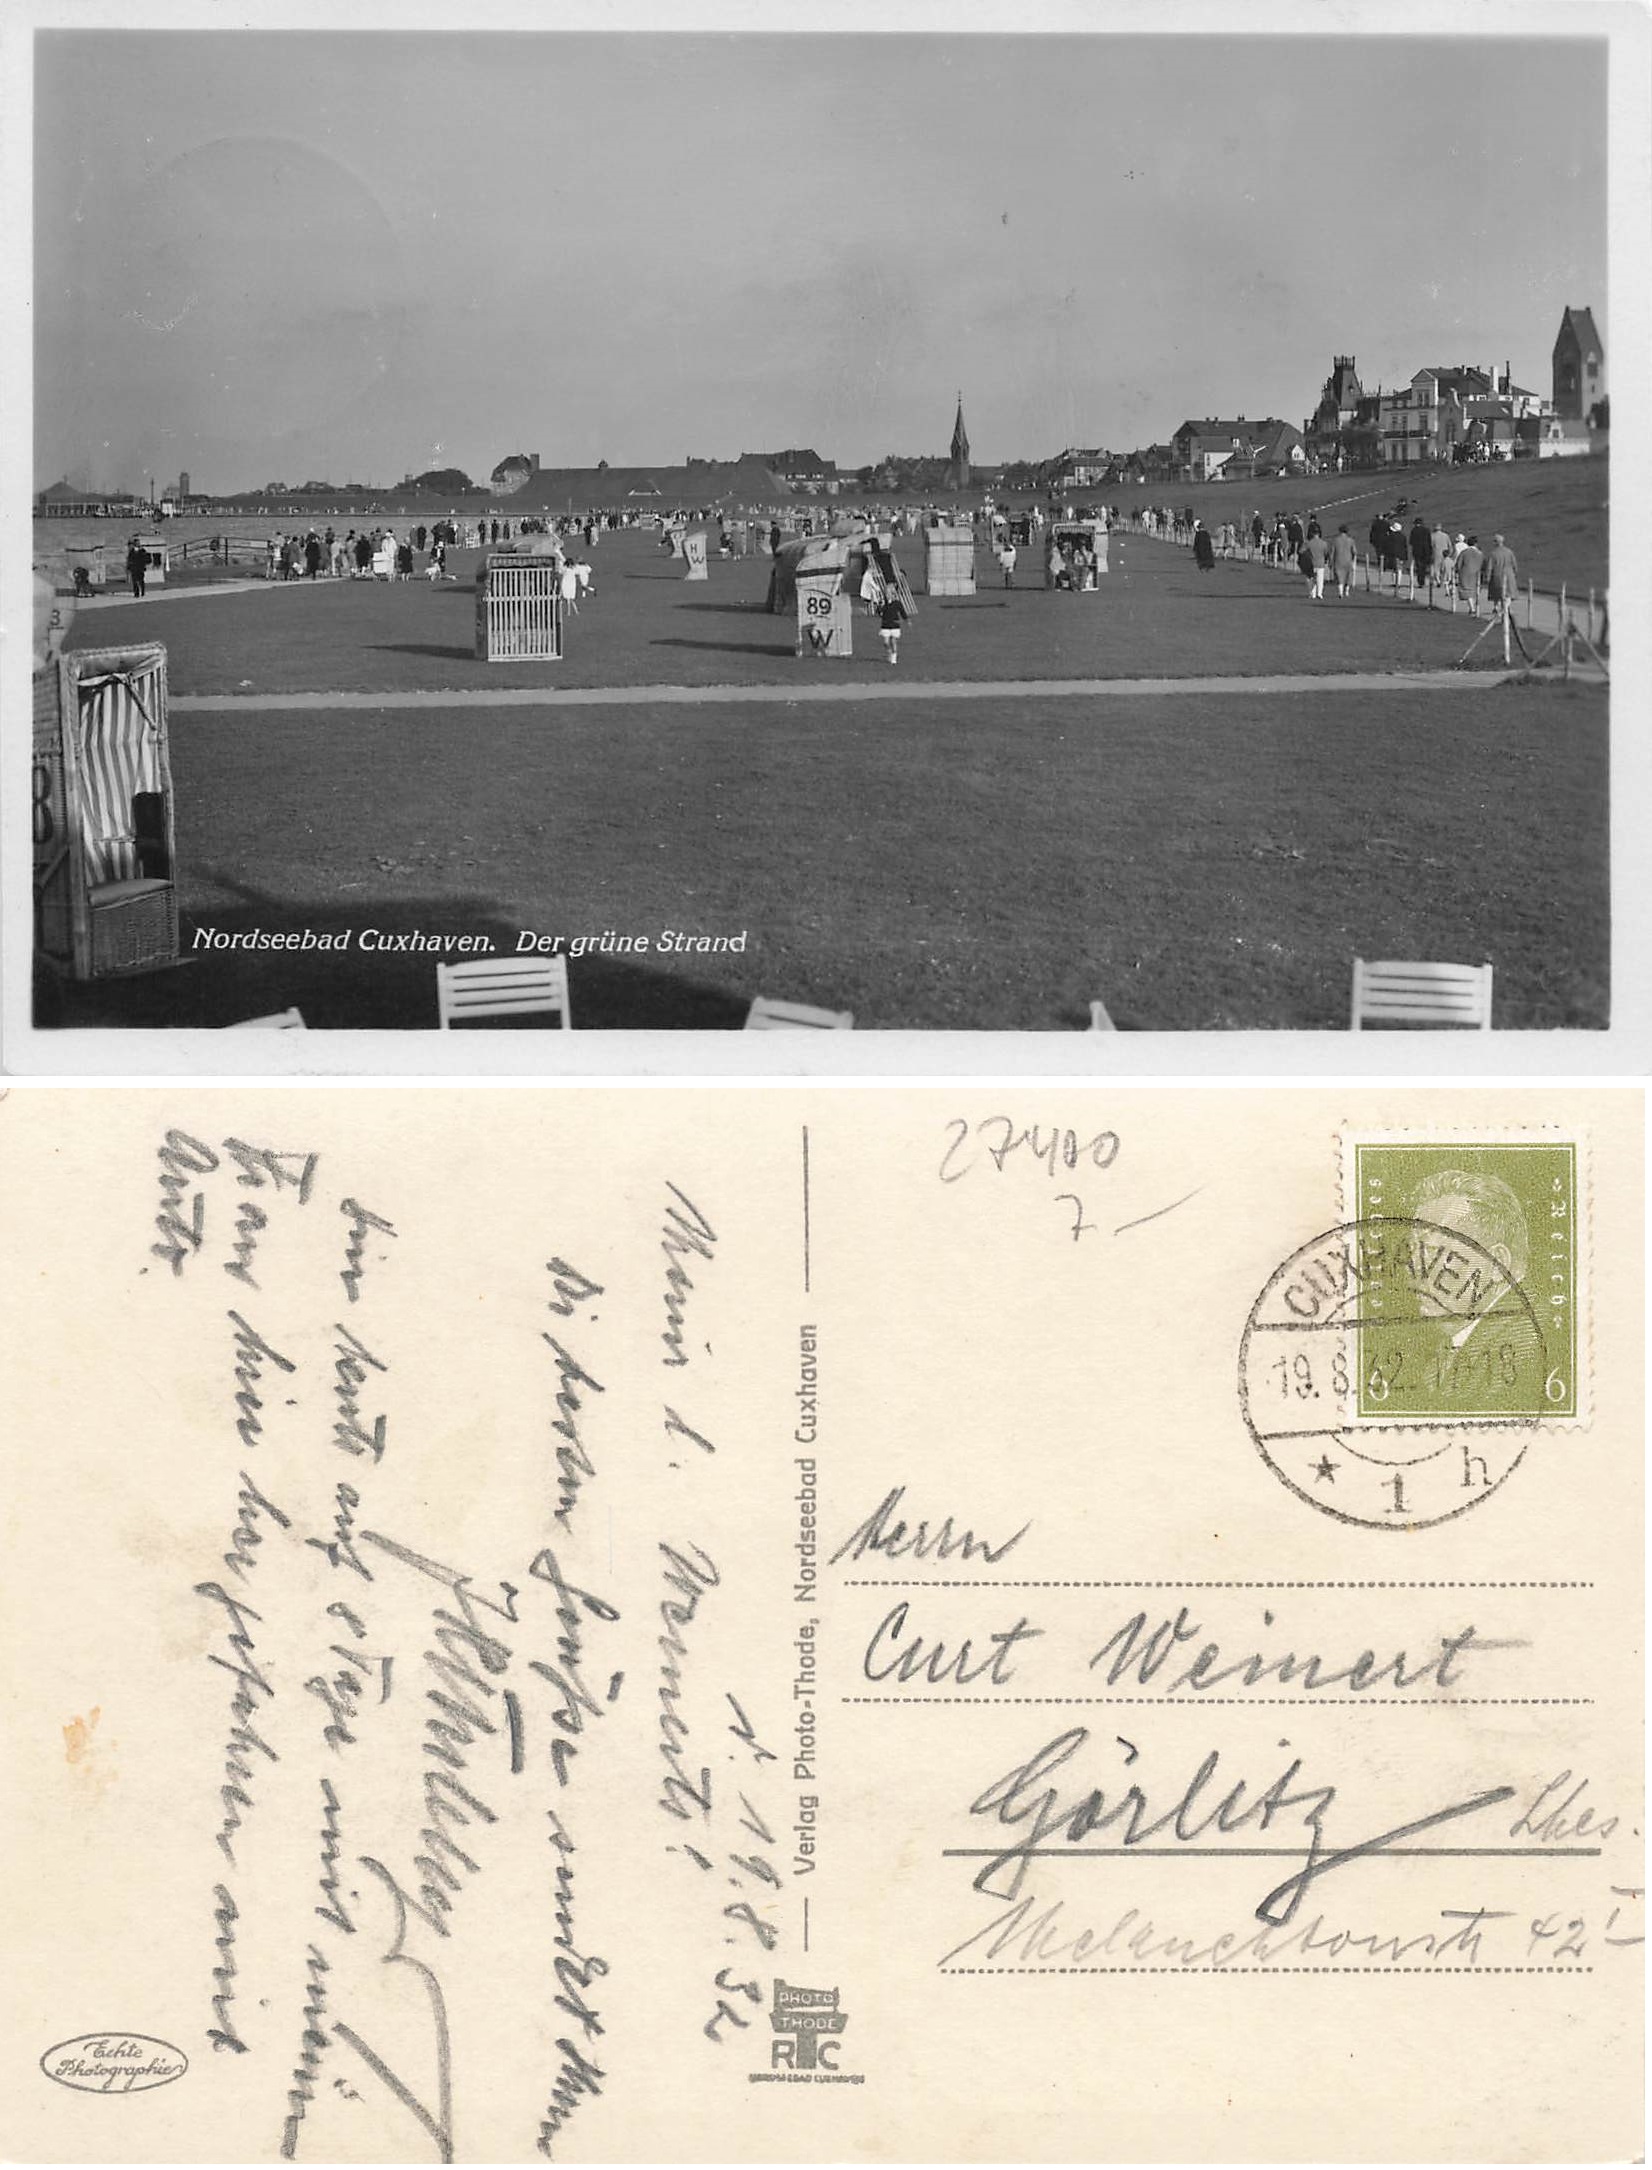 3
H
W
89
W
8
Nordseebad Cuxhaven. Der grüne Strand
27400
7 —
Deutsches Reich
6 6
CUXHAVEN
19.8.32. 17-18
* 1 h
Herrn
Curt Weinert
Görlitz
Melanchtonstr 42 I
Verlag Photo-Thode, Nordseebad Cuxhaven
PHOTO
THODE
R C
NORDSEEBAD CUXHAVEN
Echte
Photographie
19.8.32
Mein l. Weinert!
Die besten Grüße sendet Ihnen
Ihr
bin heute auf 8 Tage mit meiner
Frau hier her gefahren mit
Auto.